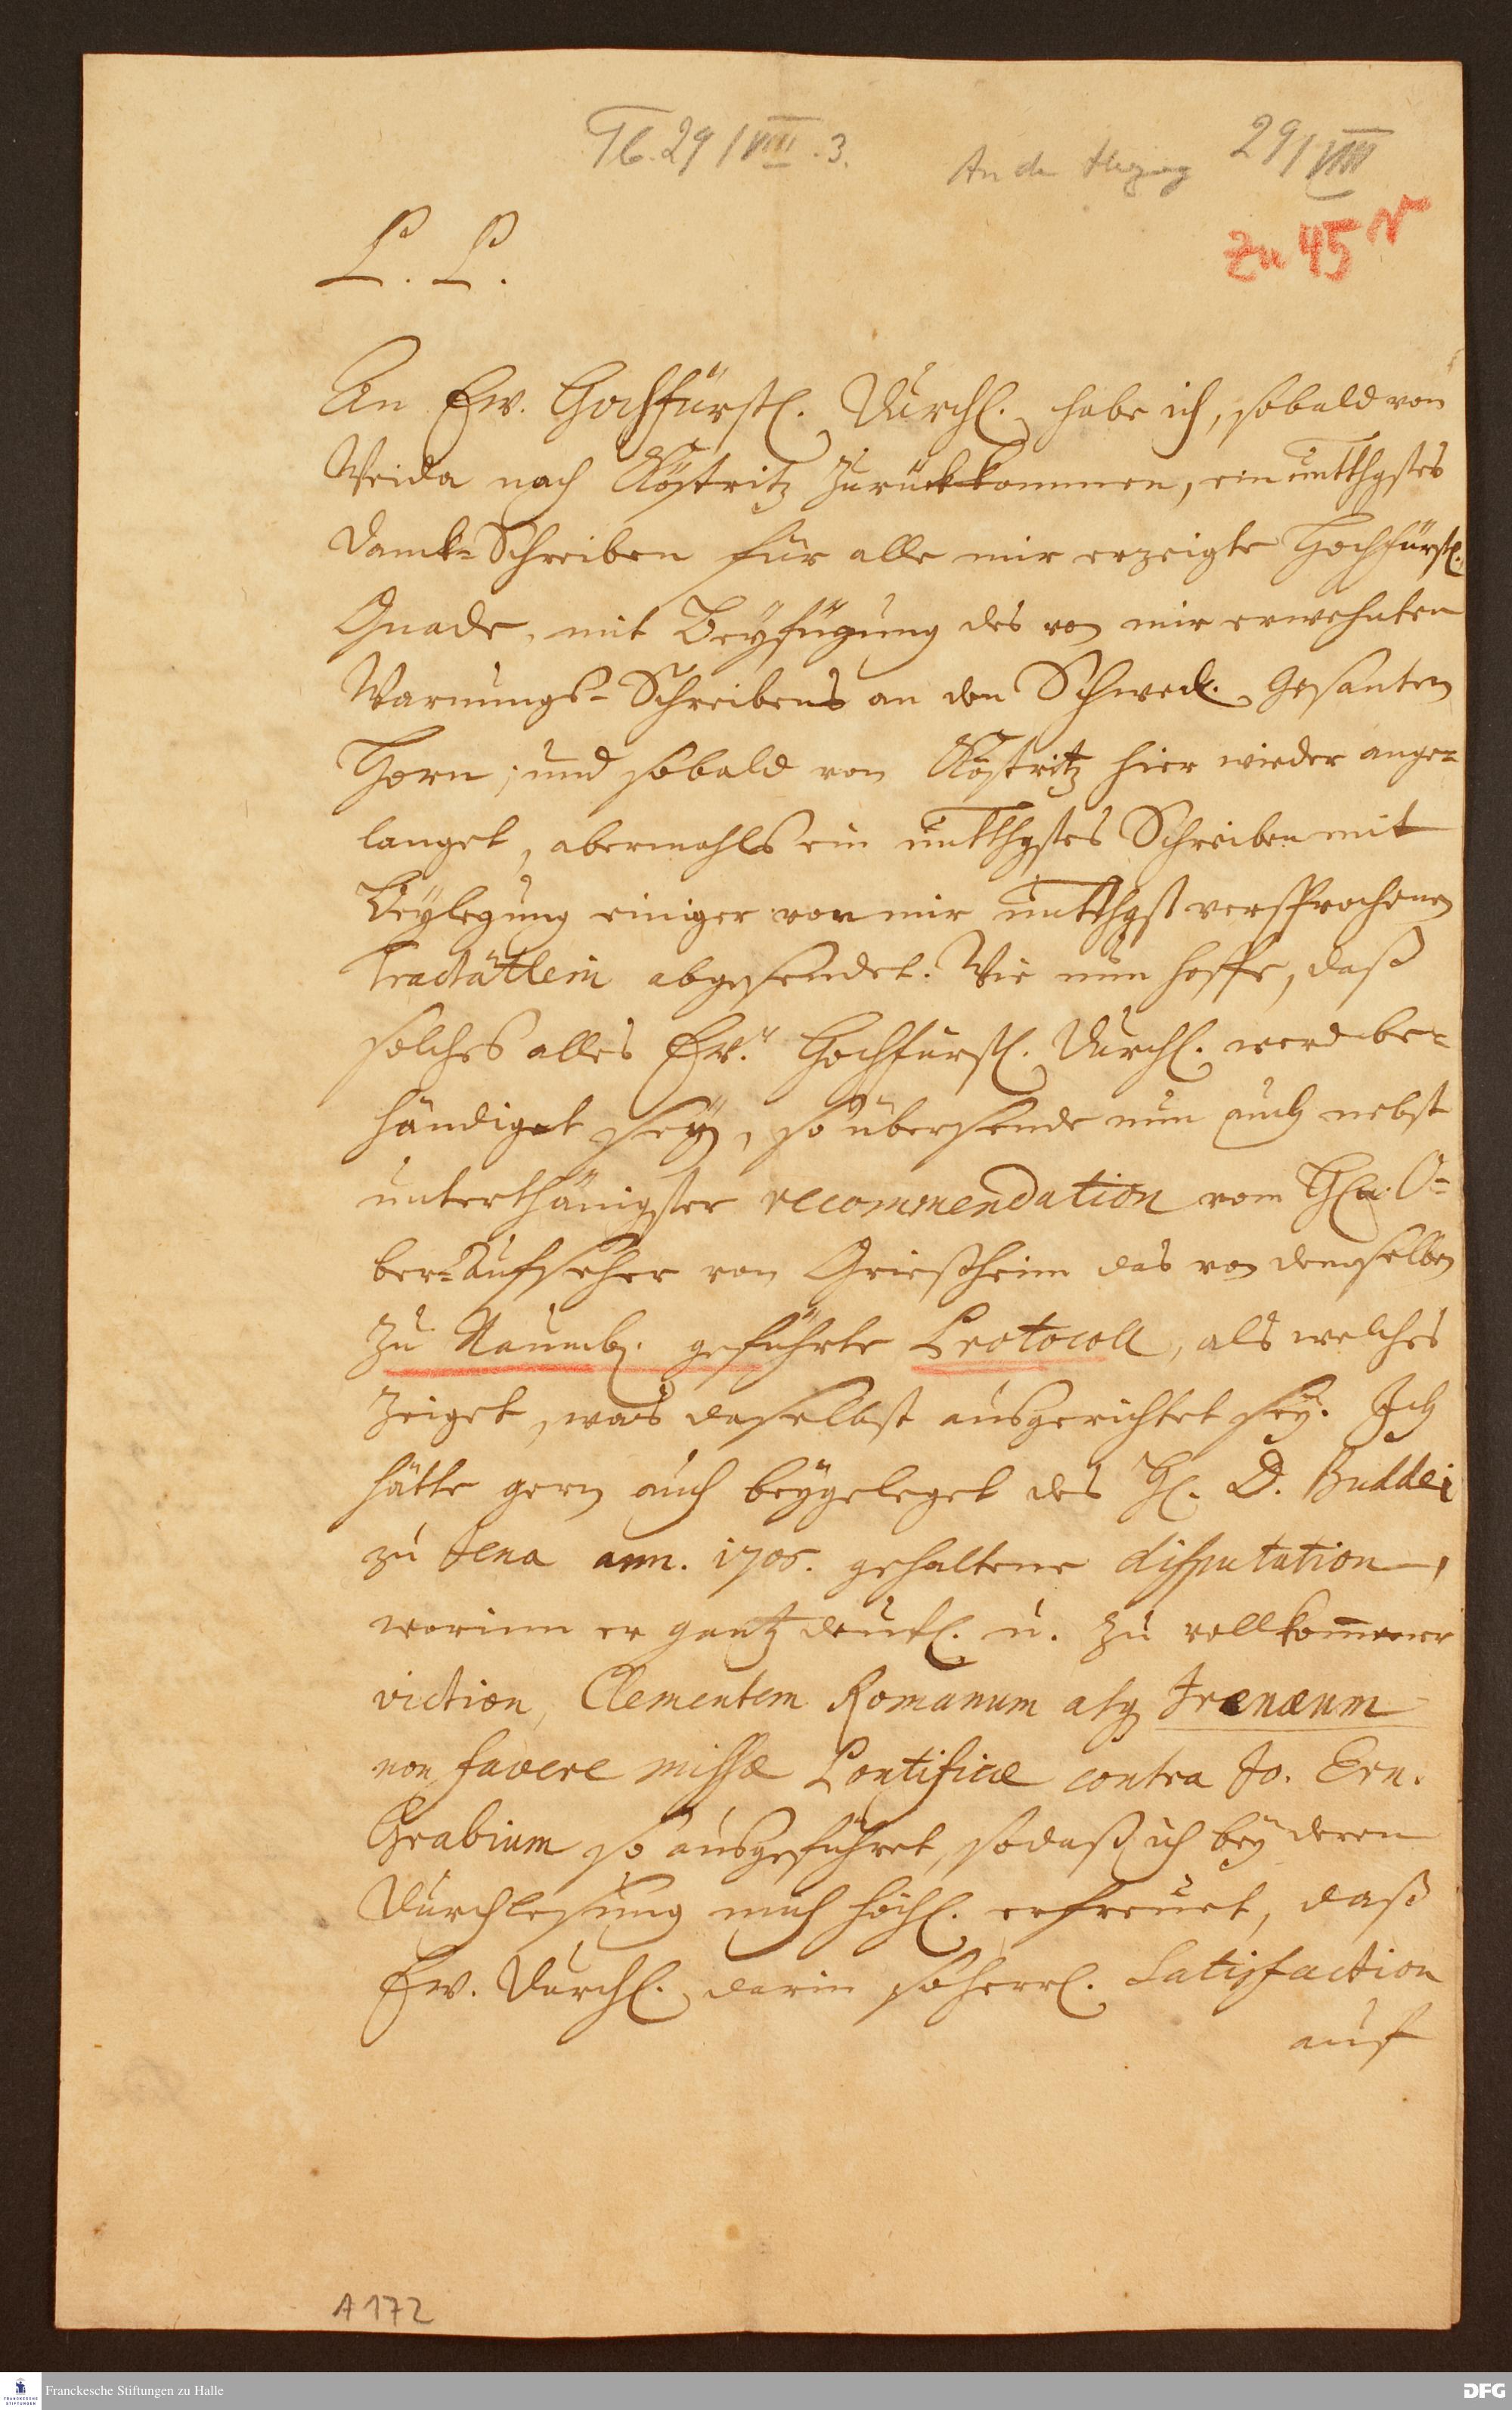 Tb. 29/VIII. 3.
An den Herzog 29/VIII
zu 45 r
P. P.
An Ew. Hochfürstl. Durchl. habe ich, sobald von
Weida nach Köstritz zurückkommen, ein untthgstes
Danck-Schreiben für alle mir erzeigte Hochfürstl.
Gnade, mit Beyfügung des von mir erwehnten
Warnungs-Schreibens an den Schwed. Gesanten
Horn; und sobald von Köstritz hier wieder ange-
langet, abermahls ein untthgstes Schreiben mit
Beylegung einiger von mir untthgst versprochenen
Tractätlein abgesendet. Wie nun hoffe, daß
solches alles Ew. Hochfürstl. Durchl. werde be-
händiget seyn, so übersende nun auch nebst
unterthänigster recommendation vom Hln. O-
ber-Aufseher von Grießheim das von demselben
zu Naumb. geführte Protocoll, als welches
zeiget, was daselbst ausgerichtet sey. Ich
hätte gern auch beygeleget des Hl. D. Buddei
zu Jena ann. 1705. gehaltene disputation,
worinn er gantz deutl. u. zu vollkommener
viction, Clementem Romanum atq Irenæum
non favere missæ Pontificiæ contra Jo. Ern.
Grabium so ausgeführet, sodaß ich bey deren
Durchlesung mich höchl. erfreuet, daß
Ew. Durchl. darin so herrl. Satisfaction
auf
A 172
Franckesche Stiftungen zu Halle
FRANCKESCHE STIFTUNGEN
DFG